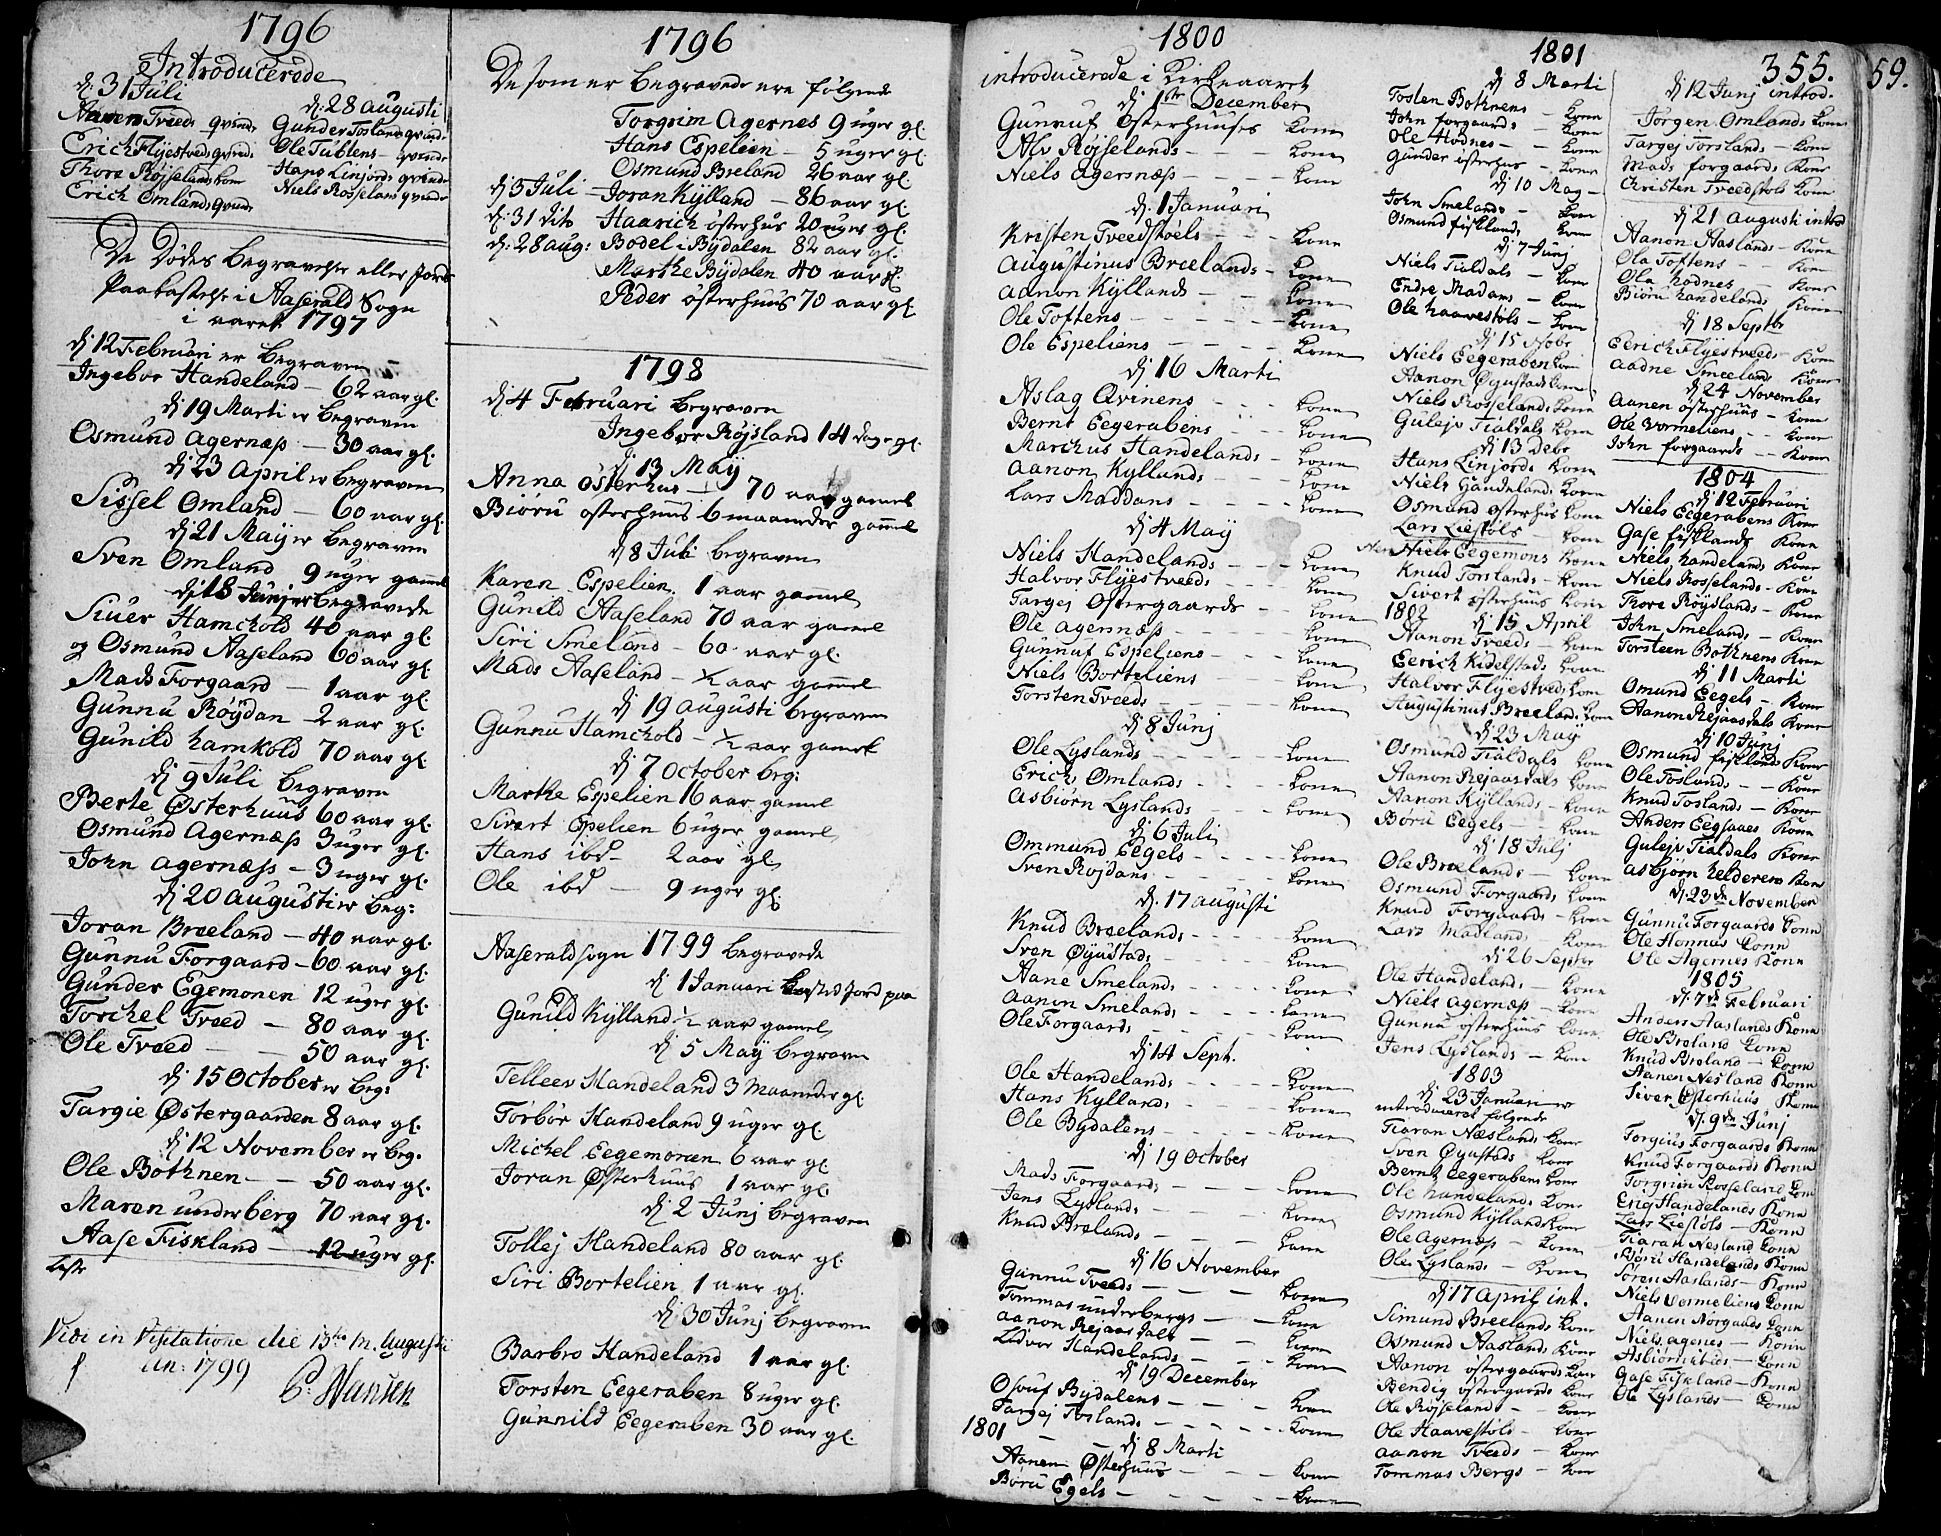 1796
Introducerede
dj: 31 Juli
Aanen Tveeds qvinde
Erich Flyestveds qvinde
Thore Røjselands kone
Erich Omlands qvinde
dj: 28 augusti
Gunder Toslands qvinde
Ole Tubtens - qvinde
Hans Linjords qvinde
Niels Rosselans qvinde
De Dødes Begravelse eller Jords
Paakastelse i Aaserald Sogn
i aaret 1797
dj 12 Februari er begraven
Ingebor Handeland - 62 aar gl.
dj 19 Marti er begraven
Osmund Agernæss - 30 aar gl.
dj 23 April er begraven
Sissel Omland - 60 aar gl.
dj 21 Maij er begraven
Sven Omland 9 uger gamel
dj 18 Junj er begravede
Siver Hamchold 40 aar gl.
og Osmund Aaseland 60 aar gl.
Mads Forgaard - 1 aar gl.
Gunnu Røydan - 2 aar gl.
Gunild hamkold 70 aar gl.
dj 9 Juli begraven
Berte Østerhuus 60 aar gl.
Osmund Agernæss 3 uger gl.
John agernæss - 3 uger gl.
dj 20 augusti er beg:
Joran Breland - 40 aar gl.
Gunnu Forgaard - 60 aar gl.
Gunder Egemonen 12 uger gl.
Torchel Tveed - 80 aar gl.
Ole Tveed - 50 aar gl.
dj 15 October er beg:
Targie Østergaarden 8 aar gl.
dj 12 November er beg.
Ole Bothnen - - 50 aar gl.
Maren underberg 70 aar gl.
Aase Fiskland - 12 uger gl.
Vidi in Visitatione die 13tio m. Augusti
an: 1799
P: Hansen
1796
De som er begravede ere følgende
Torgrim Agernes 9 uger gl.
Hans Espelien - 5 uger gl.
Osmund Breland 26 aar gl.
dj 5 Juli - Joran Kylland - 86 aar gl.
dj: 31 dito Haarich østerhus 20 uger gl.
dj: 28 aug: Bodel i Bydalen 82 aar gl.
Marthe Bydalen 40 aar gl.
Peder østerhuus 70 aar gl.
1798
dj 4 Februari begraven
Ingebor Røjsland 14 dage gl.
dj 13 Maij
Anna østerhus - 70 aar gamel
Biøru østerhuus 6 maaneder gamel
dj 8 Juli begraven
Karen Espelien. 1 aar gamel
Gunild Aaseland 70 aar gamel
Siri Smeland - 60 aar gl.
Mads Aaseland - ½ aar gamel
dj 19 augusti begraven
Gunnu Hamchold - ½ aar gamel
dj 7 October beg:
Marthe Espelien 16 aar gamel
Sivert Espelien 6 uger gamel
Hans ibd - 2 aar gl.
Ole ibd - 9 uger gl.
Aaserald sogn 1799 begravede
dj 1 Januari kastet Jord paa
Gunild Kylland ½ aar gamel
dj 5 Maij begraven
Telleev Handeland 3 maaneder gl.
Torbør Handeland 9 uger gl.
Michel Eegemonen 6 aar gl.
Joran Østerhuus 1 aar gl.
dj 2 Junj begraven
Tollej Handeland 80 aar gl.
Siri Bortelien 1 aar gl.
dj 30 Junj begraven
Barbro Handeland 1 aar gl.
Torsten Eegeraben 8 uger gl.
Gunnild Eegeraben 30 aar gl.
1800
introducerede i Kirkeaaret
dj 1ste December
Gunnuf Østerhuuses kone
Alv Røjselands - - - kone
Niels Agernæss - - - kone
dj. 1 Januari
Kristen Tveedstoels - - kone
Augustinus Breelands - kone
Aanon Kyllands - - kone
Ole Toftens - - - - kone
Ole Espeliens - - - - kone
dj 16 Marti
Aslag Qvinens - - kone
Bernt Eegerabens - - kone
Marchus Handelands - kone
Aanon Kyllands - - kone
Lars Maddans - - - kone
dj 4 Maij
Niels Handelands - - - kone
Halvor Flyestveeds - - - kone
Targej Østergaards - - kone
Ole Agernæss - - - - kone
Gunnuf Espeliens - - - kone
Niels Borteliens - - - kone
Torsten Tveeds - - - - kone
dj 8 Junj
Ole Lyslands - - - - kone
Erichs Omlands - - - kone
Asbiørn Lyslands - - kone
dj 6 Juli
Ommund Eegels - - - - kone
Sven Røjdans - - - - kone
dj. 17 augusti
Knud Breelands - - - - kone
Sven Øyustads - - - - kone
Aane Smelands - - - - kone
Aanon Smelands - - - kone
Ole Forgaards - - - - kone
dj 14 Sept.
Ole Handelands - - - - kone
Hans Kyllands - - - - kone
Ole Bydalens - - - - kone
dj 19 October
Mads Forgaards - - - kone
Jens Lyslands - - - - kone
Knud Brelands - - - - kone
dj 16 November
Gunnu Tveeds - - - kone
Tommas underbergs - - kone
Aanon Rejaasdals - - kone
Lidvor Handelands - - kone
dj 19 December
Osouf Bydalens - - - kone
Targej Toslands - - - kone
1801
dj 8 Marti
Aanen Østerhuus - - - kone
Børu Egels - - - - kone
1801
dj 8 Marti
Tosten Bothnens - kone
John forgaards - kone
Ole Hodnes - - kone
Gunder østerhus - kone
dj 10 Maj -
John Smelands - kone
Osmund fisklands kone
dj 7 Junj
Niels Tialdals - kone
Endre Madans - kone
Ole haavestøls - kone
dj 15 Nobr
Niels Eegeraben kone
Aanon Øyustads kone
Niels Rosselands kone
Gulejv Tialdals kone
dj 13 Debr
Hans Linjords kone
Niels Handelands kone
Osmund østerhus kone
Lars Liestøls kone
Niels Eegemons kone
Knud Torslands - kone
Sivert østerhuus kone
1802 dj 15 April
Aanon Tveeds - kone
Eerich Kidelstads kone
Halvor Flyestveds kone
Augustinus Breeland. kone
dj 23 Maj
Osmund Tialdals kone
Aanon Rejaasdals kone
Aanon Kyllands - kone
Børu Eegels - kone
dj 18 Julj
Ole Brelands - kone
Osmund Forgaards kone
Knud Forgaards - kone
Lars Madland - kone
dj 26 Septbr
Ole Handelands - kone
Niels Agernæss - kone
Gunnu østerhuus kone
Jens Lyslands - kone
1803
dj 23 Januari er
introduceret følgende
Tiaran Næslands kone
Sven Øyustads kone
Bernt Eegerabens kone
Ole handelands kone
Osmund Kyllands kone
Ole agernæss - kone
Ole Lyslands - kone
dj 17 April int.
Simund Breelands kone
Osmund Aaslands kone
Aanon østergaards kone
Bendig østergaards kone
Ole Røjselands - - kone
Ole Haavestøls - kone
Aanon Tveeds - kone
Tommas Bergs - kone
355.
59.
dj 12 Junj introd.
Jørgen Omlands kone
Targej Torslands - kone
Mads forgaards kone
Christen Tveedstøls kone
dj 21 augusti introd
Aanon Aaslands - kone
Ola Toftens - kone
Ola hodnes - kone
Biøru handelands kone
dj 18 Septbr
Eerich Flyestveeds kone
Aadne Smeelands kone
dj 24 November
Aanen østerhuus - kone
Ole Vormeliens - - kone
John forgaards - kone
1804
dj 12 Februari
Niels Eegerabens kone
Gase fisklands kone
Niels handelands kone
Niels Rosselands - kone
Thore Røydlands - kone
John Smelands - kone
Torsteen Bothnens kone
dj 11 Marti
Omund Eegels - kone
Aanon Rejaasdals kone
dj 10 Junj
Osmund fisklands kone
Ole Toslands - - kone
Knud Toslands - kone
Anders Eegsaaes kone
Gulejv Tialdals kone
Asbjørn helderens kone
dj 23de November
Gunnu Forgaards konn
Ole Honnas konn
Ole Agernes konn
1805
dj. 7de Februari
Anders Aaslands konn
Ole Breland konn
Knud Breland - konn
Aanen Nesland konn
Siver Østerhuus konn
dj. 9de Junj
Torgius Forgaards konn
Knud Forgaards konn
Torgrim Rosseland konn
Eriq Handelands konn
Lars Liestøls - konn
Tiaran Nesland konn
Biøru Handelands konn
Søren Aaslands - konn
Niels Vermeliens konn
Aanen Norgaards konn
Niels agenes - konn
Asbiørn ibids - konn
Gase Fiskland - konn
Ole Lyslands - konn